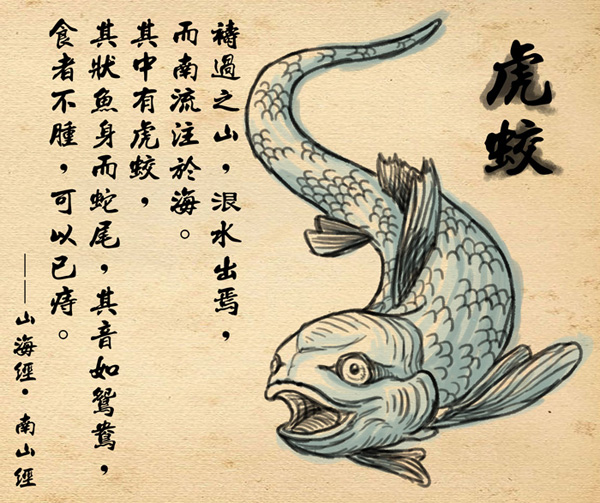 虎蛟
禱過之山，泿水出焉，
而南流注於海。
其中有虎蛟，
其狀魚身而蛇尾，其音如鴛鴦，
食者不腫，可以已痔。
——山海經·南山經